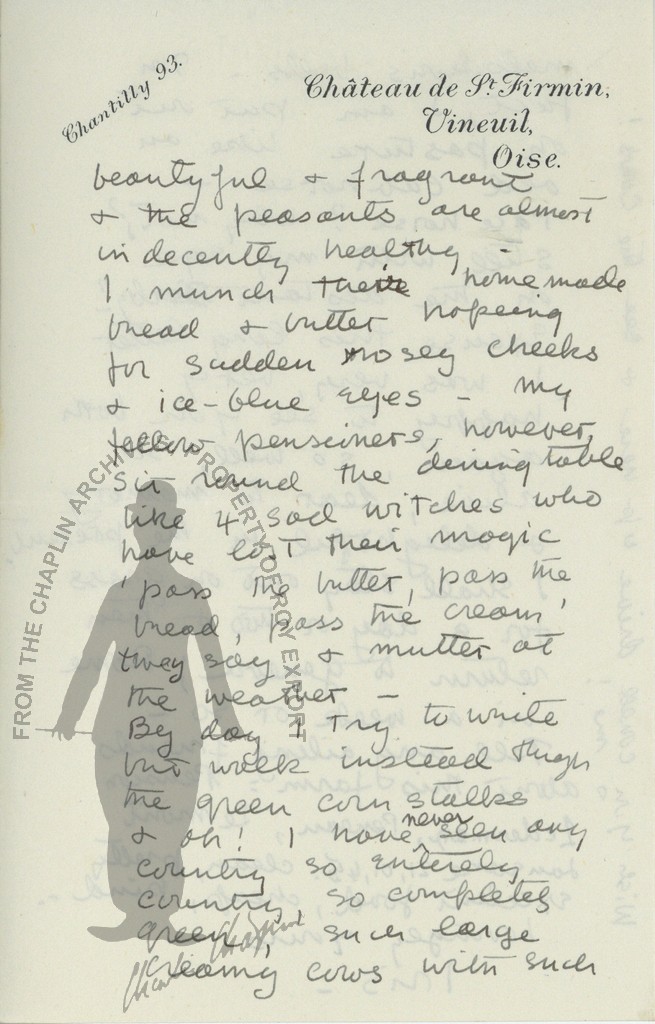 Chantilly 93.
Château de St. Firmin,
Vineuil,
Oise.
beautyful & fragrant
& the peasants are almost
indecently healthy -
I munch their home made
bread & butter hopeing
for sudden rosey cheeks
& ice-blue eyes - my
fellow pensiners, however,
sit round the dining table
like 4 sad witches who
have lost their magic
'pass the butter, pass the
bread, pass the cream,'
they say & mutter at
the weather -
By day I try to write
but walk instead though
the green corn stalks
& oh! I have never seen any
country so entirely
country, so completely
green, such large
creamy cows with such
FROM THE CHAPLIN ARCHIVES PROPERTY OF ROY EXPORT
Charlie Chaplin